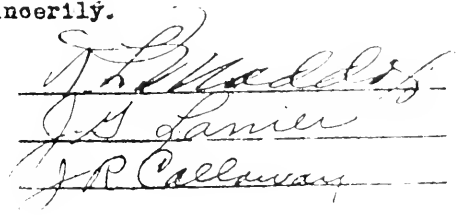 incerily.
Maddox
J G Lanier
J R Callaway